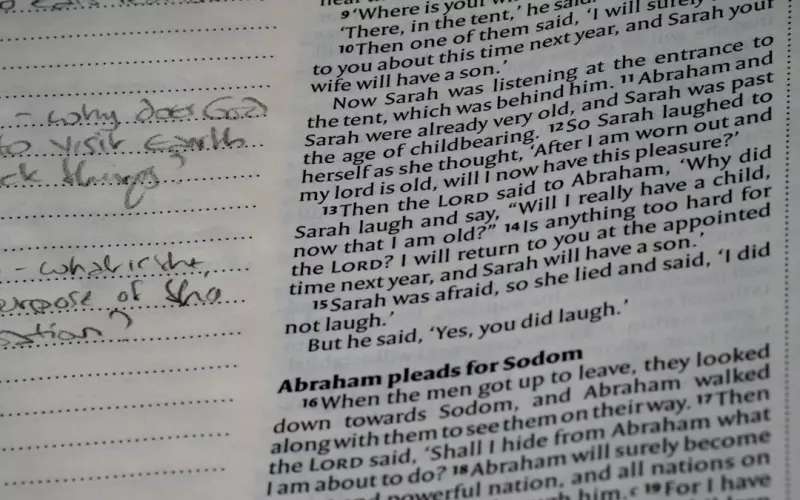 - why does God
to visit earth
ck things?
- what is the
urpose of the
ation?
9 'Where is your wi
'There, in the tent,' he said.
10 Then one of them said, 'I will surely
to you about this time next year, and Sarah your
wife will have a son.'
Now Sarah was listening at the entrance to
the tent, which was behind him. 11 Abraham and
Sarah were already very old, and Sarah was past
the age of childbearing. 12 So Sarah laughed to
herself as she thought, 'After I am worn out and
my lord is old, will I now have this pleasure?'
13 Then the LORD said to Abraham, 'Why did
Sarah laugh and say, "Will I really have a child,
now that I am old?" 14 Is anything too hard for
the LORD? I will return to you at the appointed
time next year, and Sarah will have a son.'
15 Sarah was afraid, so she lied and said, 'I did
not laugh.'
But he said, 'Yes, you did laugh.'
Abraham pleads for Sodom
16 When the men got up to leave, they looked
down towards Sodom, and Abraham walked
along with them to see them on their way. 17 Then
the LORD said, 'Shall I hide from Abraham what
I am about to do? 18 Abraham will surely become
and powerful nation, and all nations on
him. c 19 For I have